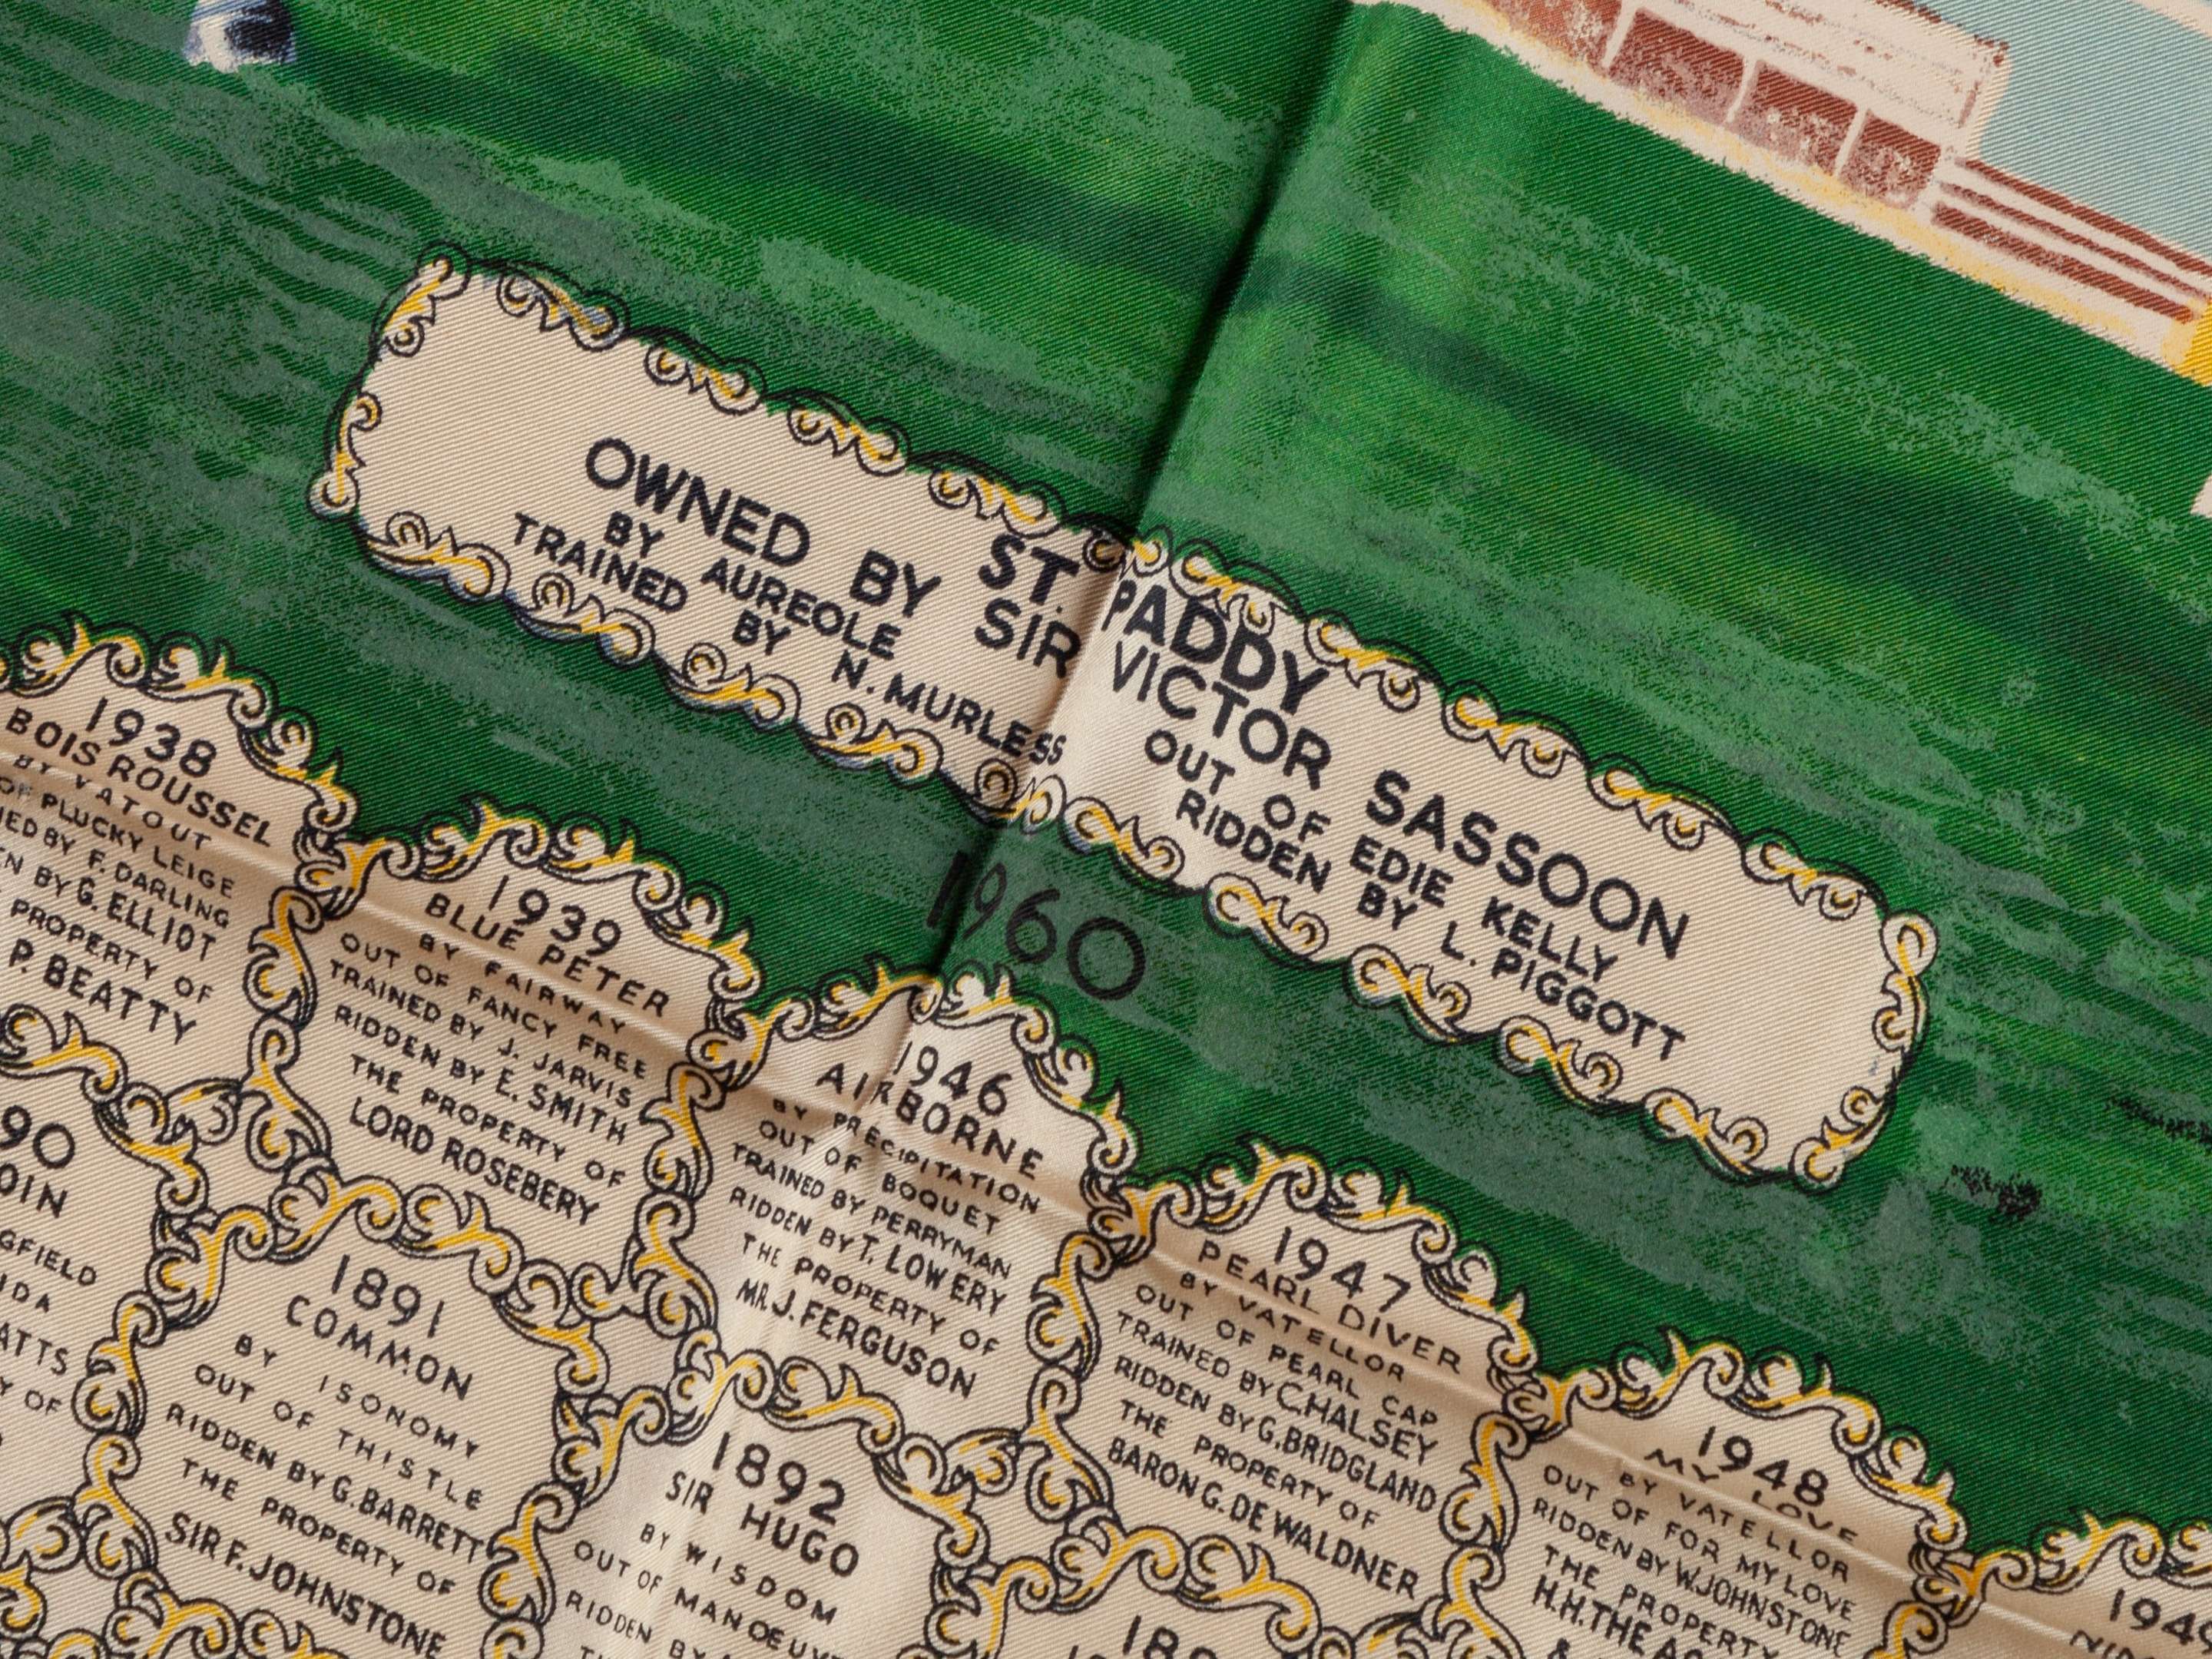 ST. PADDY
OWNED BY SIR VICTOR SASSOON
BY AUREOLE OUT OF EDIE KELLY
TRAINED BY N. MURLESS RIDDEN BY L. PIGGOTT
1960
1938
BOIS ROUSSEL
BY VATOUT
OF PLUCKY LEIGE
BY F. DARLING
BY G. ELLIOT
PROPERTY OF
P. BEATTY
1939
BLUE PETER
BY FAIRWAY
OUT OF FANCY FREE
TRAINED BY J. JARVIS
RIDDEN BY E. SMITH
THE PROPERTY OF
LORD ROSEBERY
1946
AIRBORNE
BY PRECIPITATION
OUT OF BOQUET
TRAINED BY PERRYMAN
RIDDEN BY T. LOWERY
THE PROPERTY OF
MR. J. FERGUSON
1947
PEARL DIVER
BY VATELLOR
OUT OF PEARL CAP
TRAINED BY C. HALSEY
RIDDEN BY G. BRIDGLAND
THE PROPERTY OF
BARON G. DE WALDNER
1948
MY LOVE
BY VATELLOR
OUT OF FOR MY LOVE
RIDDEN BY W. JOHNSTONE
THE PROPERTY
H.H. THE
&
90
OF
1891
COMMON
BY ISONOMY
OUT OF THISTLE
RIDDEN BY G. BARRETT
THE PROPERTY OF
SIR F. JOHNSTONE
1892
SIR HUGO
BY WISDOM
OUT OF
RIDDEN BY